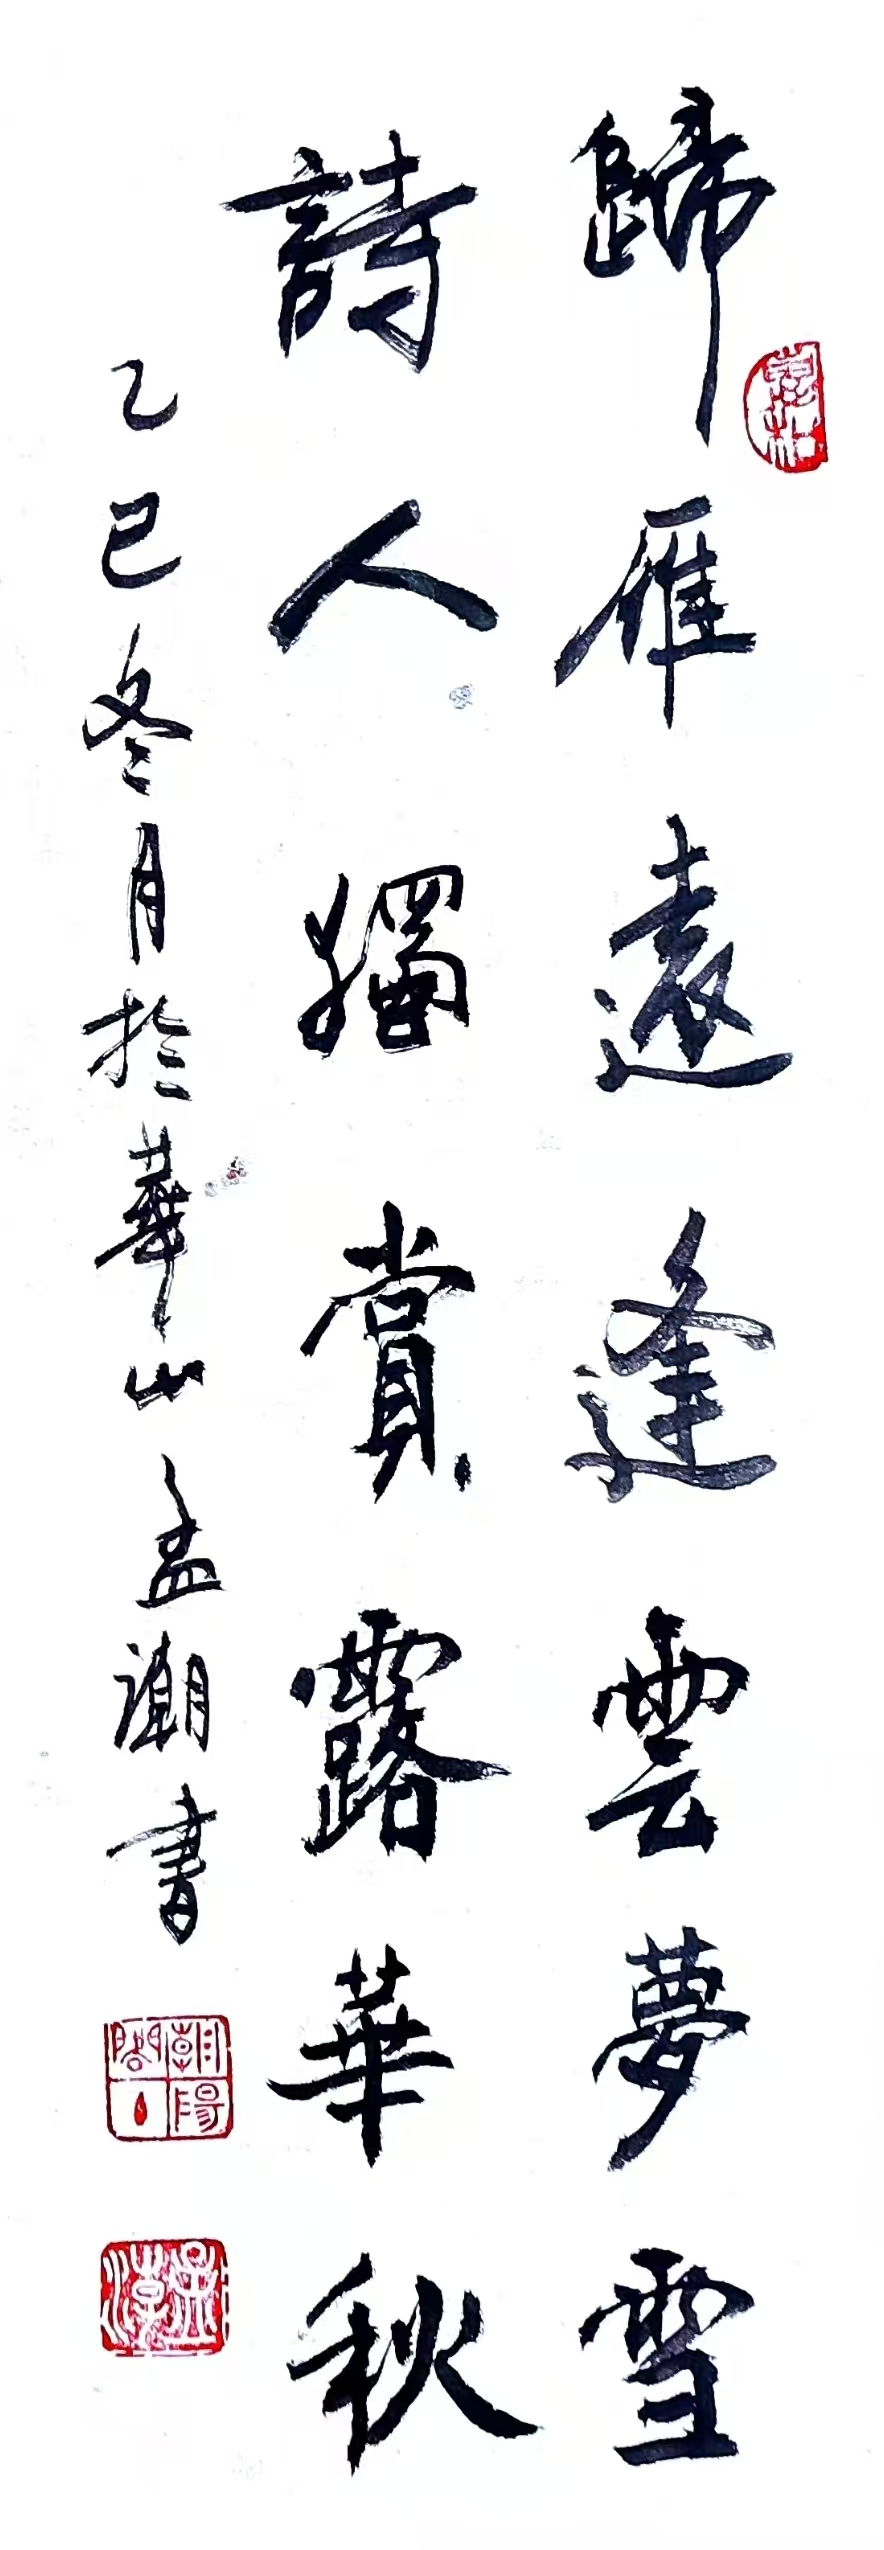 歸雁遠逢雲夢雪
詩人獨賞露華秋
乙巳冬月於華山孟潮書
朝陽閣
孟潮